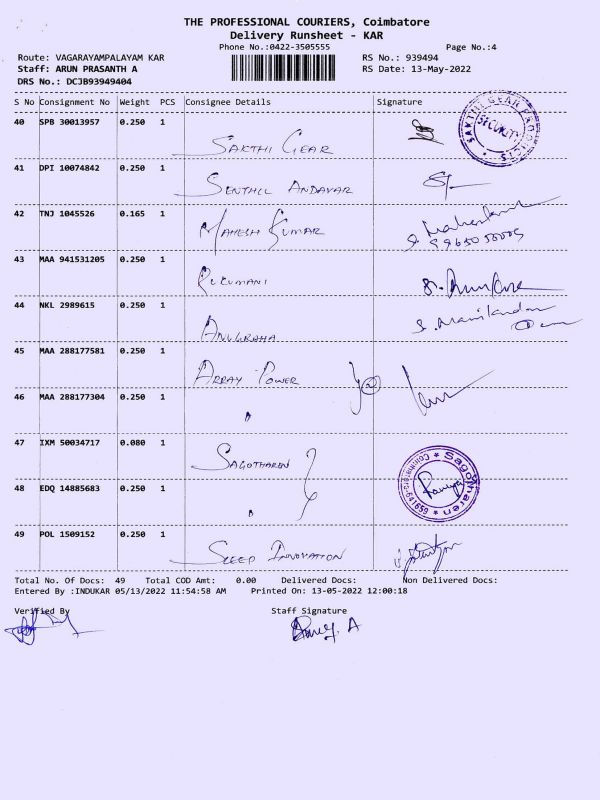 THE PROFESSIONAL COURIERS, Coimbatore
Delivery Runsheet - KAR
Phone No.:0422-3505555 Page No.:4
Route: VAGARAYAMPALAYAM KAR RS No.: 939494
Staff: ARUN PRASANTH A RS Date: 13-May-2022
DRS No.: DCJB93949404
S No Consignment No Weight PCS Consignee Details Signature
40 SPB 30013957 0.250 1 SAKTHI GEAR SECURITY
41 DPI 10074842 0.250 1 SENTHIL ANDAVAR
42 TNJ 1045526 0.165 1 MAHESH KUMAR
43 MAA 941531205 0.250 1 RUKUMANI
44 NKL 2989615 0.250 1 ANUGRAHA S. Manikandan
45 MAA 288177581 0.250 1 ARRAY POWER
46 MAA 288177304 0.250 1
47 IXM 50034717 0.080 1 SAGOTHAREN Sagotharen
48 EDQ 14885683 0.250 1
49 POL 1509152 0.250 1 SLEEP INNOVATION
Total No. Of Docs: 49 Total COD Amt: 0.00 Delivered Docs: Non Delivered Docs:
Entered By :INDUKAR 05/13/2022 11:54:58 AM Printed On: 13-05-2022 12:00:18
Verified By Staff Signature